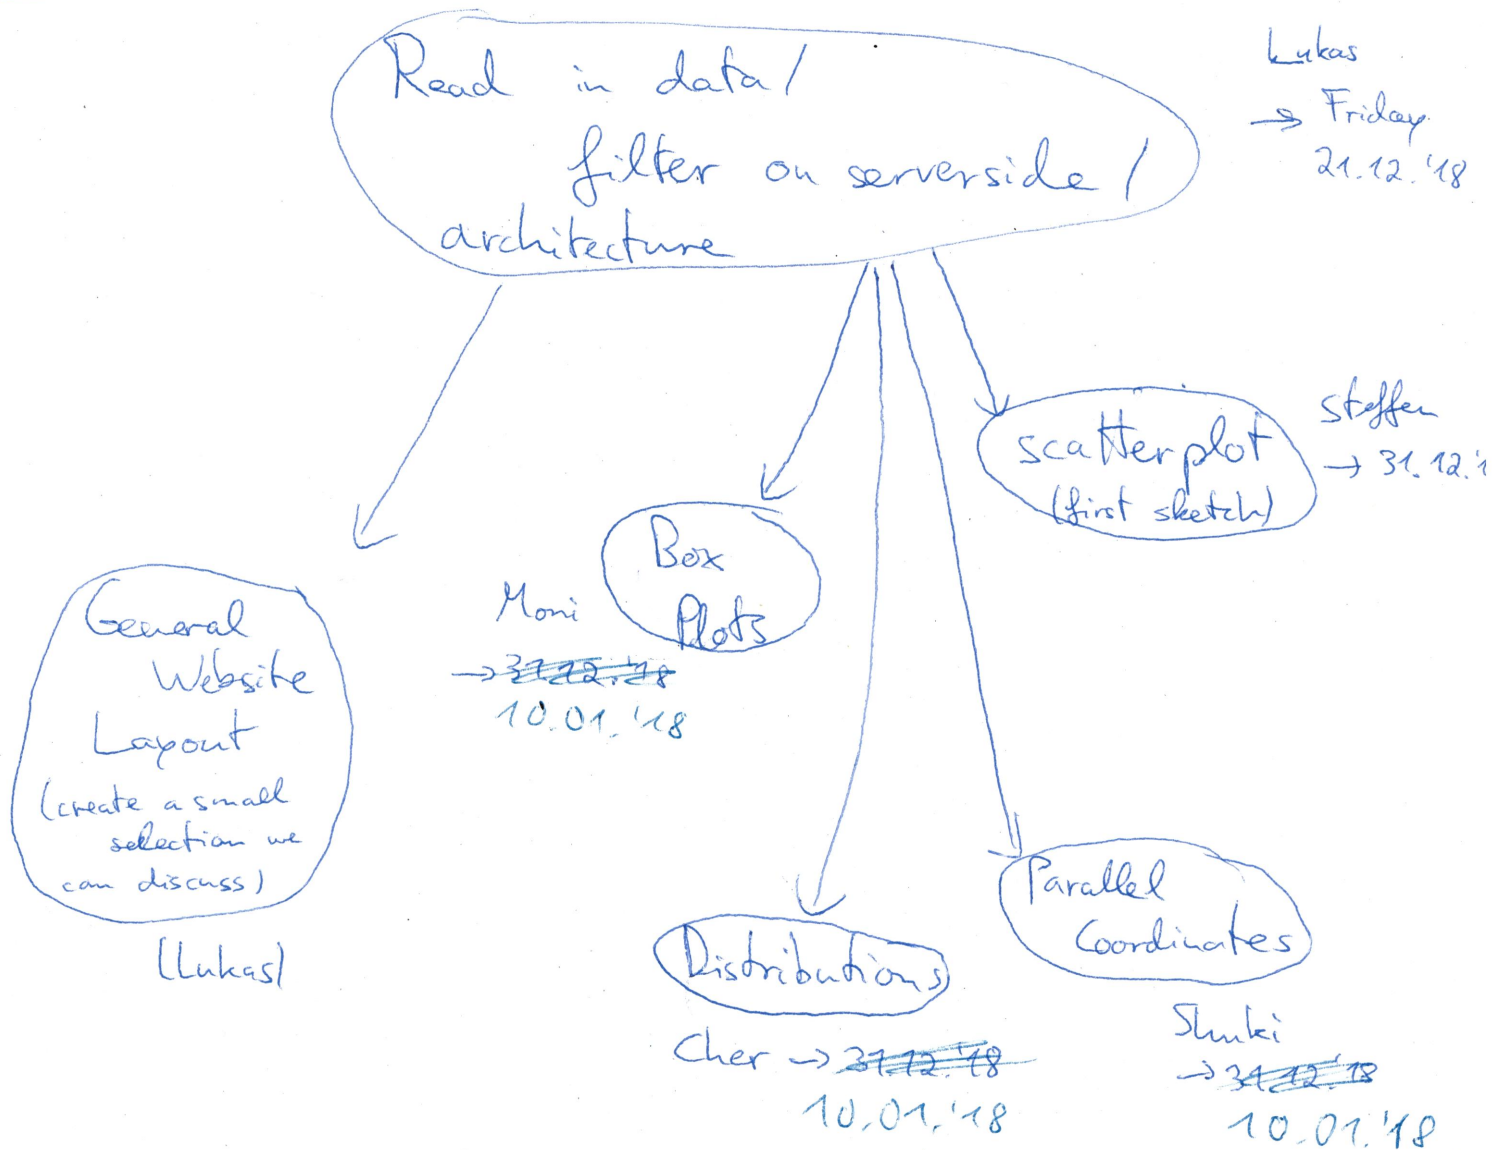 Read in data /
filter on serverside /
architecture
Lukas
→ Friday
21.12.'18
scatterplot
(first sketch)
Steffen
→ 31.12.'1
Box
Plots
Moni
→ 31.12.'18
10.01.'18
General
Website
Layout
(create a small
selection we
can discuss)
(Lukas)
Distributions
Cher → 31.12.'18
10.01.'18
Parallel
Coordinates
Shuki
→ 31.12.'18
10.01.'18